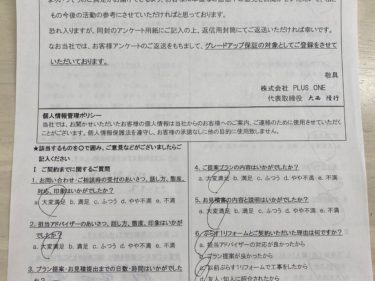 もの今後の活動の参考にさせていただければと思っております。
恐れ入りますが、同封のアンケート用紙にご記入の上、返信用封筒にてご返送いただければ幸いです。
なお当社では、お客様アンケートのご返送をもちまして、グレードアップ保証の対象としてご登録をさせて
いただいております。
敬具
株式会社 PLUS ONE
代表取締役 大西 隆行
個人情報管理ポリシー
当社では、お聞かせいただいたお客様の個人情報は当社からのお客様へのご案内、ご連絡のために使用させていただく
ことがございます。個人情報保護法を遵守し、お客様の承諾なしに他の目的に使用致しません。
★該当するものを〇で囲み、ご意見などがございましたらご
記入ください
Ⅰ ご契約までに関するご質問
1. お問い合わせ・ご相談時の受付のあいさつ、話し方、態度、
対応、印象はいかがでしたか?
a. 大変満足 b. 満足 c. ふつう d. やや不満 e. 不満
2. 担当アドバイザーのあいさつ、話し方、態度、印象はいかが
でしたか?
a. 大変満足 b. 満足 c. ふつう d. やや不満 e. 不満
3. プラン提案・お見積提出までの日数・時間はいかがでしたか?
4. ご提案プランの内容はいかがでしたか?
a. 大変満足 b. 満足 c. ふつう d. やや不満 e. 不満
5. お見積書の内容と説明はいかがでしたか?
a. 大変満足 b. 満足 c. ふつう d. やや不満 e. 不満
6. ぷらす1リフォームとご契約いただいた理由は何ですか?
a. 担当アドバイザーの対応が良かったから
b. プラン提案が良かったから
c. 以前ぷらす1リフォームで工事をしたから
d. 友人・知人に紹介されたから